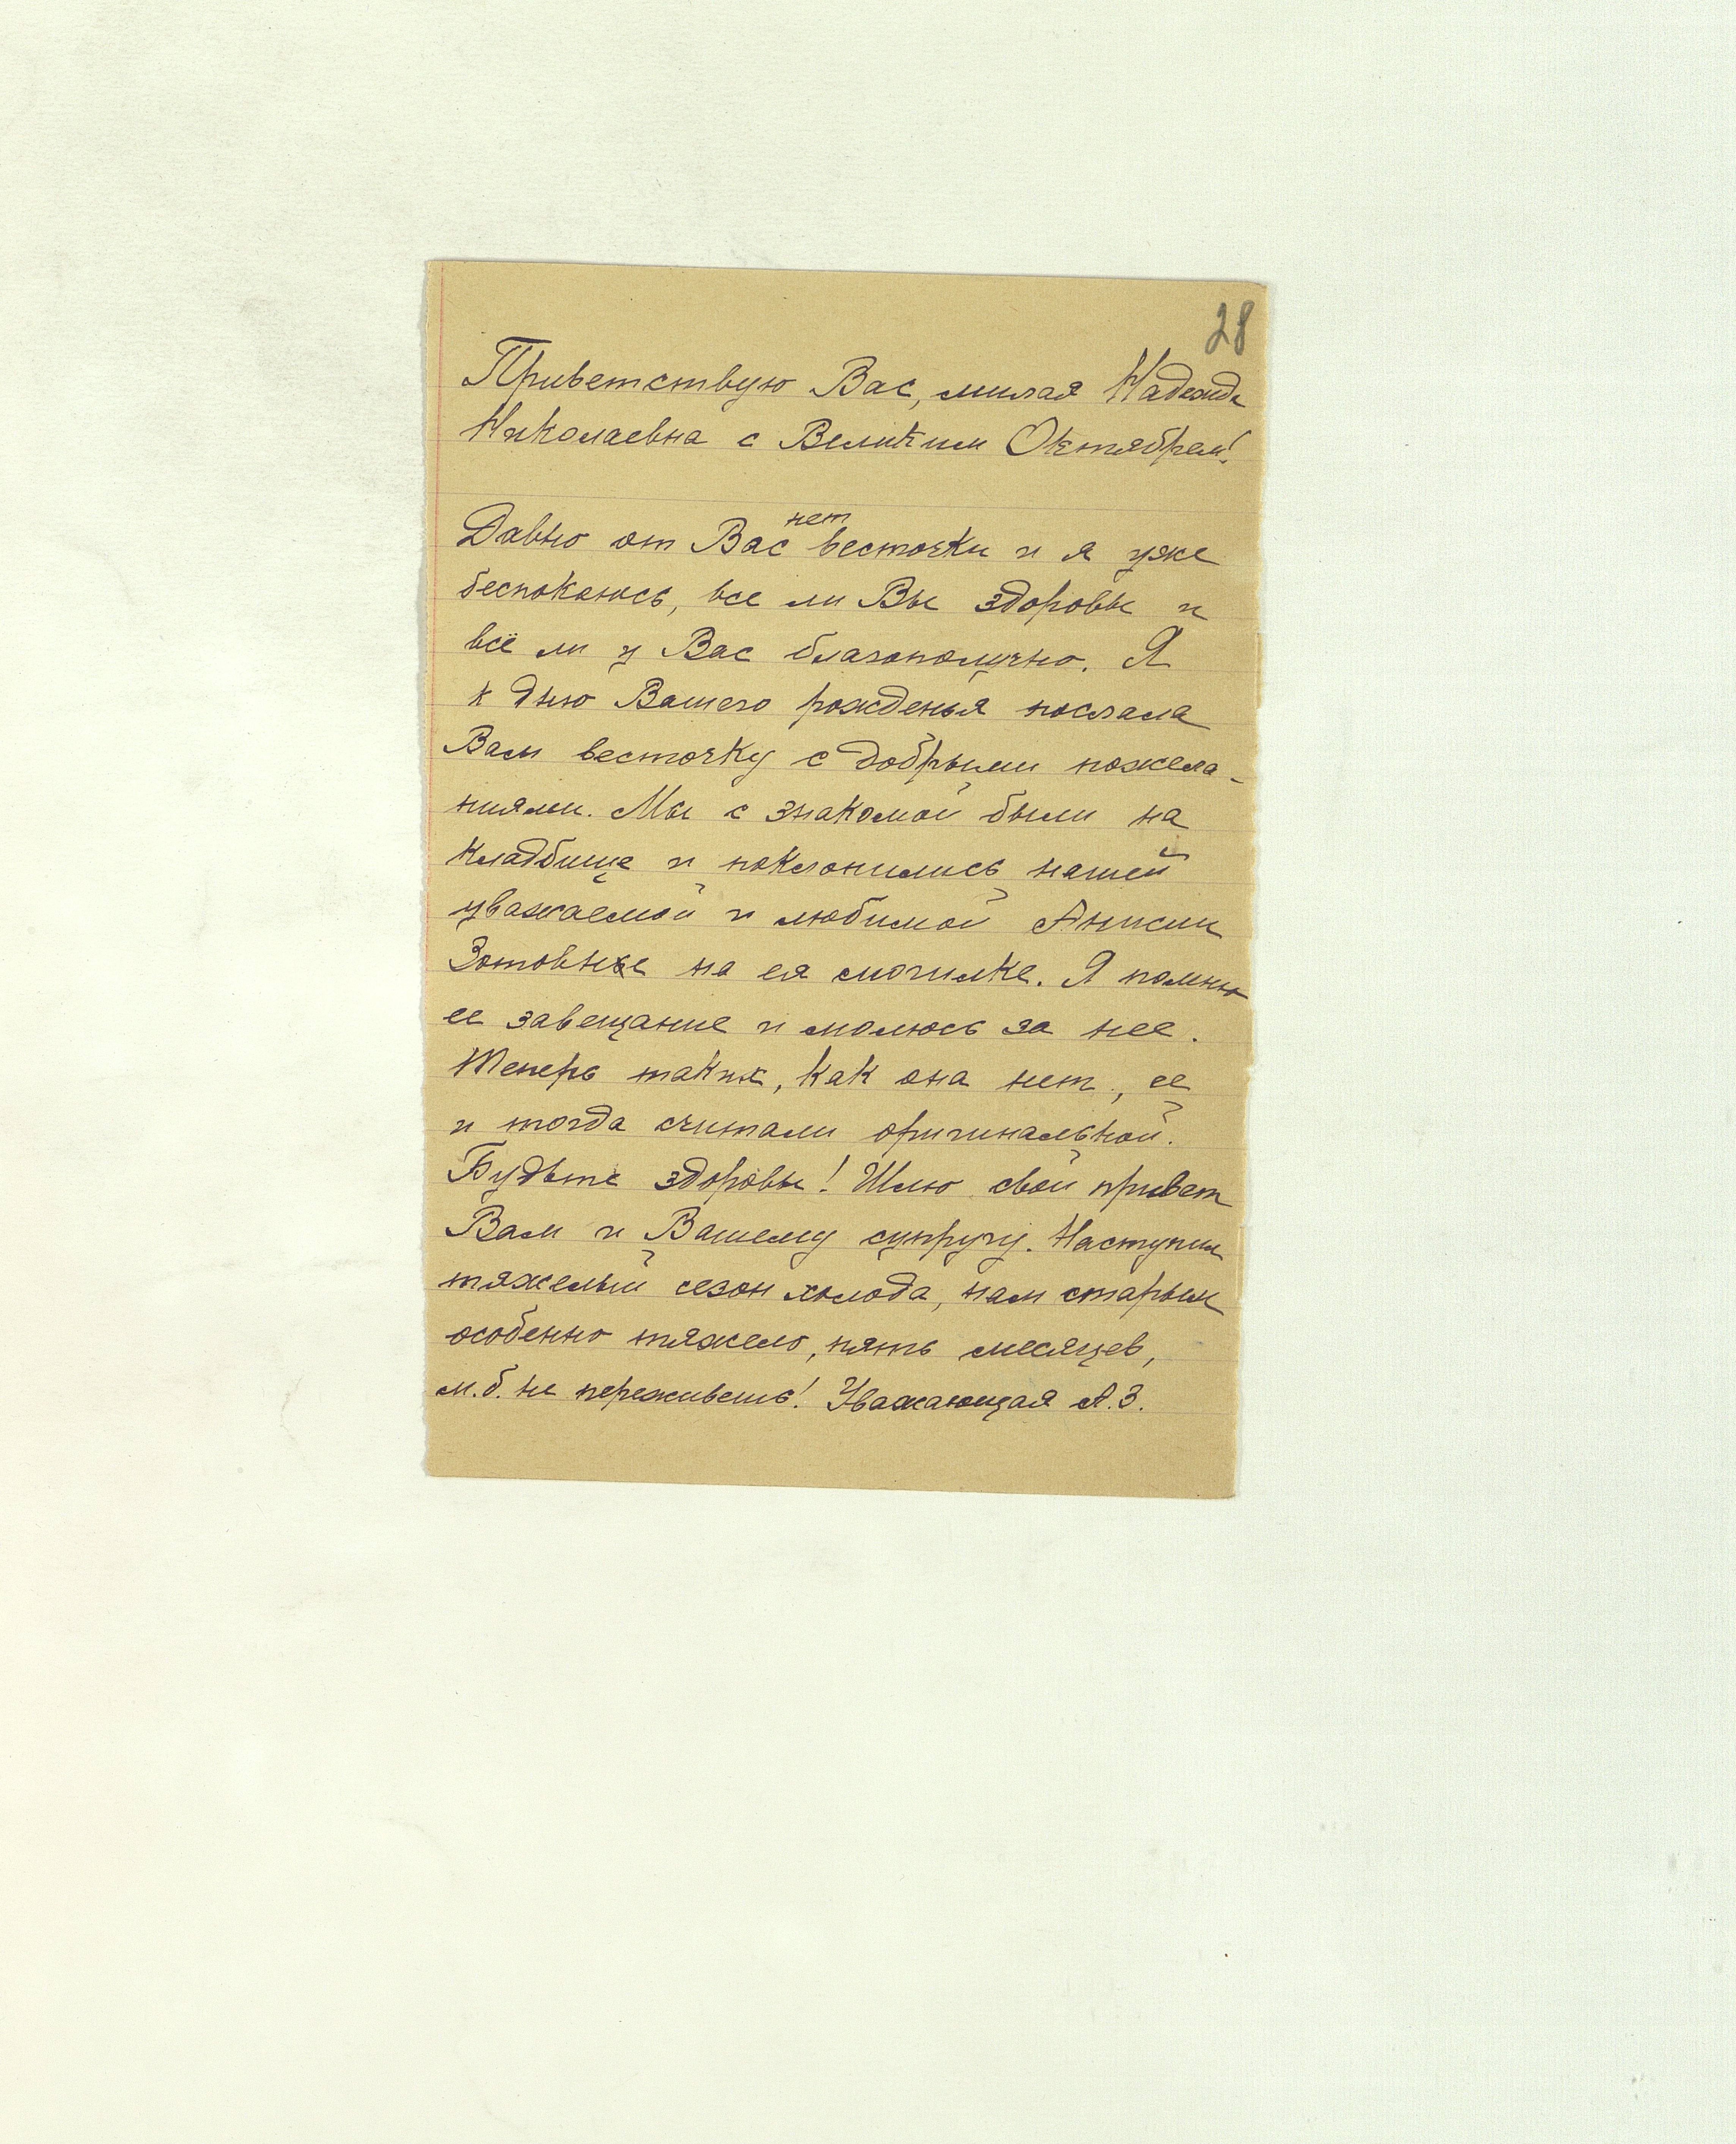 28
Приветствую Вас, милая Надежда
Николаевна с Великим Октябрем!
нет
Давно от Вас весточки и я уже
беспокоюсь, все ли Вы здоровы и
всё ли у Вас благополучно. Я
к дню Вашего рожденья послала
Вам весточку с добрыми пожела-
ниями. Мы с знакомой были на
кладбище и поклонились нашей
уважаемой и любимой Анисии
Зотовне на ея могилке. Я помню
ее завещание и молюсь за нее.
Теперь таких, как она нет, ее
и тогда считали оригинальной.
Будьте здоровы! Шлю свой привет
Вам и Вашему супругу. Наступил
тяжелый сезон холода, нам старым
особенно тяжело, пять месяцев,
м.б. не переживешь! Уважающая А.З.